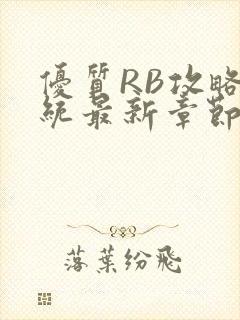 優質RB攻略
統最新章節
落葉紛飛